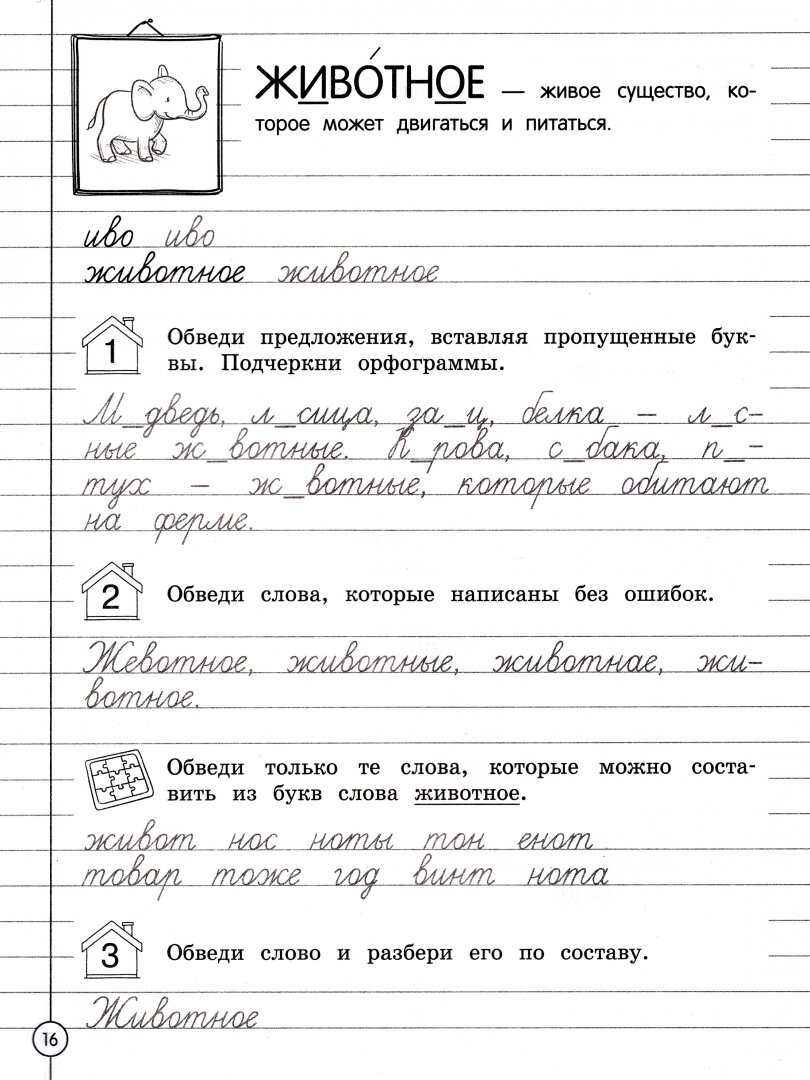 ЖИВО́ТНОЕ — живое существо, ко-
торое может двигаться и питаться.
иво иво
животное животное
1 Обведи предложения, вставляя пропущенные бук-
вы. Подчеркни орфограммы.
М_дведь, л_сица, за_ц, белка — л_с-
ные ж_вотные. К_рова, с_бака, п_-
тух — ж_вотные, которые обитают
на ферме.
2 Обведи слова, которые написаны без ошибок.
Жевотное, животные, животнае, жи-
вотное.
Обведи только те слова, которые можно соста-
вить из букв слова животное.
живот нос ноты тон енот
товар тоже год винт нота
3 Обведи слово и разбери его по составу.
Животное
16